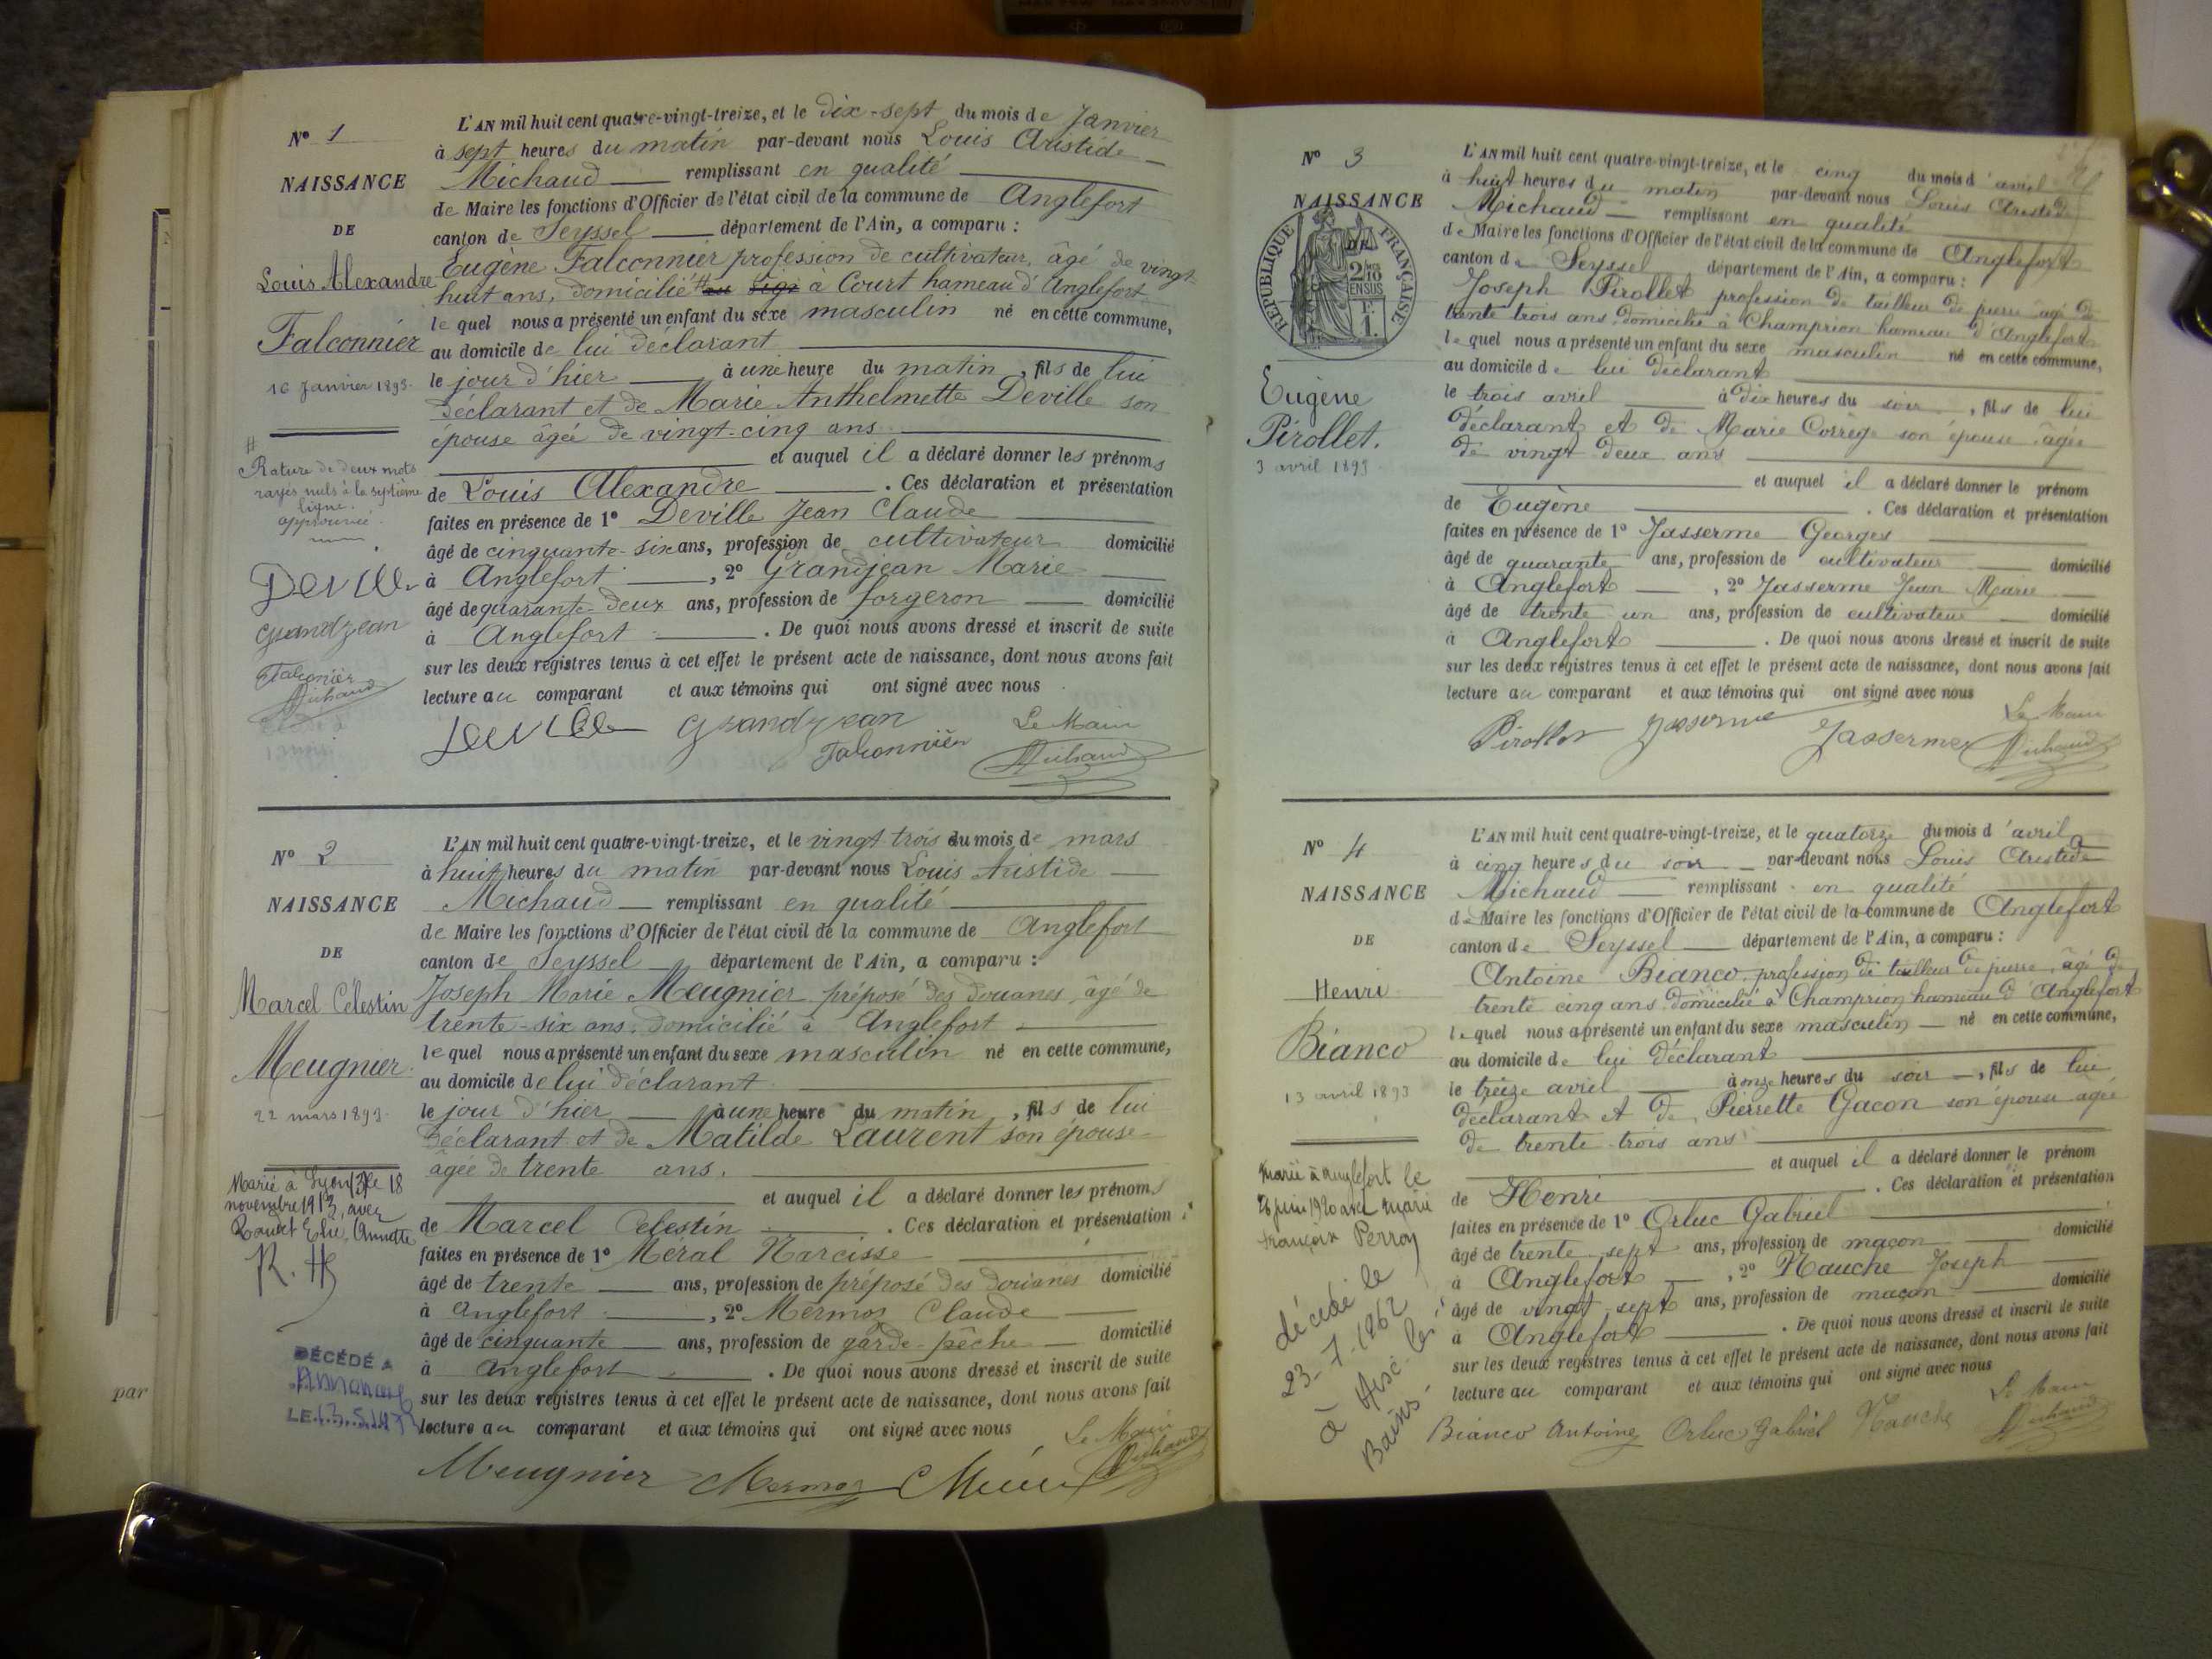 N° 1
NAISSANCE
DE
Louis Alexandre
Falconnier
16 Janvier 1893.
#
Rature de deux mots
rayés nuls à la septième
ligne.
approuvée.
Deville
grandjean
Falconnier
Michaud
L'AN mil huit cent quatre-vingt-treize, et le dix-sept du mois de Janvier
à sept heures du matin par-devant nous Louis Aristide
Michaud remplissant en qualité
de Maire les fonctions d'Officier de l'état civil de la commune de Anglefort
canton de Seyssel département de l'Ain, a comparu :
Eugène Falconnier profession de cultivateur, âgé de vingt-
huit ans, domicilié # à Court hameau d'Anglefort
le quel nous a présenté un enfant du sexe masculin né en cette commune,
au domicile de lui déclarant
le jour d'hier à une heure du matin, fils de lui
déclarant et de Marie Anthelmette Deville son
épouse âgée de vingt-cinq ans
et auquel il a déclaré donner les prénoms
de Louis Alexandre . Ces déclaration et présentation
faites en présence de 1° Deville Jean Claude
âgé de cinquante-six ans, profession de cultivateur domicilié
à Anglefort , 2° Grandjean Marie
âgé de quarante-deux ans, profession de forgeron domicilié
à Anglefort . De quoi nous avons dressé et inscrit de suite
sur les deux registres tenus à cet effet le présent acte de naissance, dont nous avons fait
lecture au comparant et aux témoins qui ont signé avec nous
Deville grandjean Falconnier Le Maire
Michaud
N° 2
NAISSANCE
DE
Marcel Célestin
Meugnier.
22 mars 1893.
Marié à Lyon (3e) le 18
novembre 1913, avec
Elie Annette
R. H
DÉCÉDÉ A
LE
par
L'AN mil huit cent quatre-vingt-treize, et le vingt trois du mois de mars
à huit heures du matin par-devant nous Louis Aristide
Michaud remplissant en qualité
de Maire les fonctions d'Officier de l'état civil de la commune de Anglefort
canton de Seyssel département de l'Ain, a comparu :
Joseph Marie Meugnier préposé des Douanes, âgé de
trente-six ans, domicilié à Anglefort
le quel nous a présenté un enfant du sexe masculin né en cette commune,
au domicile de lui déclarant
le jour d'hier à une heure du matin, fils de lui
déclarant et de Matilde Laurent son épouse
âgée de trente ans.
et auquel il a déclaré donner les prénoms
de Marcel Celestin . Ces déclaration et présentation
faites en présence de 1° Méral Narcisse
âgé de trente ans, profession de préposé des douanes domicilié
à Anglefort , 2° Mermoz Claude
âgé de cinquante ans, profession de garde-pêche domicilié
à Anglefort . De quoi nous avons dressé et inscrit de suite
sur les deux registres tenus à cet effet le présent acte de naissance, dont nous avons fait
lecture au comparant et aux témoins qui ont signé avec nous
Le Maire
Meugnier Mermoz Michaud
N° 3
NAISSANCE
DE
RÉPUBLIQUE FRANÇAISE
2/10 EN SUS
1F.
Eugène
Pirollet.
3 avril 1893.
L'AN mil huit cent quatre-vingt-treize, et le cinq du mois d'avril
à huit heures du matin par-devant nous Louis Aristide
Michaud remplissant en qualité
de Maire les fonctions d'Officier de l'état civil de la commune de Anglefort
canton de Seyssel département de l'Ain, a comparu :
Joseph Pirollet profession de tailleur de pierre âgé de
trente trois ans, domicilié à Champrion hameau d'Anglefort
le quel nous a présenté un enfant du sexe masculin né en cette commune,
au domicile de lui déclarant
le trois avril à dix heures du soir, fils de lui
déclarant et de Marie Corrège son épouse âgée
de vingt deux ans
et auquel il a déclaré donner le prénom
de Eugène . Ces déclaration et présentation
faites en présence de 1° Jasserme Georges
âgé de quarante ans, profession de cultivateur domicilié
à Anglefort , 2° Jasserme Jean Marie
âgé de trente un ans, profession de cultivateur domicilié
à Anglefort . De quoi nous avons dressé et inscrit de suite
sur les deux registres tenus à cet effet le présent acte de naissance, dont nous avons fait
lecture au comparant et aux témoins qui ont signé avec nous
Le Maire
Pirollet Jasserme Jasserme Michaud
N° 4
NAISSANCE
DE
Henri
Bianco
13 avril 1893
Marié à Anglefort le
26 juin 1920 avec Marie
Françoise Perroy
décédé le
23-7-1962
à Aix-les-
Bains
L'AN mil huit cent quatre-vingt-treize, et le quatorze du mois d'avril
à cinq heures du soir par-devant nous Louis Aristide
Michaud remplissant en qualité
de Maire les fonctions d'Officier de l'état civil de la commune de Anglefort
canton de Seyssel département de l'Ain, a comparu :
Antoine Bianco profession de tailleur de pierre, âgé de
trente cinq ans domicilié à Champrion hameau d'Anglefort
le quel nous a présenté un enfant du sexe masculin né en cette commune,
au domicile de lui déclarant
le treize avril à onze heures du soir, fils de lui
déclarant et de Pierrette Gacon son épouse âgée
de trente trois ans
et auquel il a déclaré donner le prénom
de Henri . Ces déclaration et présentation
faites en présence de 1° Orluc Gabriel
âgé de trente sept ans, profession de maçon domicilié
à Anglefort , 2° Hauche Joseph
âgé de vingt sept ans, profession de maçon domicilié
à Anglefort . De quoi nous avons dressé et inscrit de suite
sur les deux registres tenus à cet effet le présent acte de naissance, dont nous avons fait
lecture au comparant et aux témoins qui ont signé avec nous
Le Maire
Bianco Antoine Orluc Gabriel Hauche Michaud